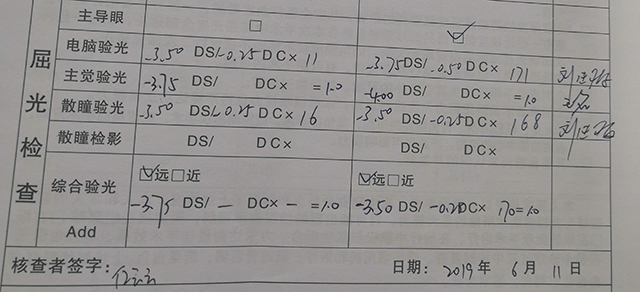 屈光检查
主导眼 □ ☑
电脑验光 -3.50 DS/-0.25 DC× 11 -3.75 DS/ -0.50 DC× 171
主觉验光 -3.75 DS/ DC× =1.0 -4.00 DS/ DC× =1.0
散瞳验光 -3.50 DS/-0.25 DC× 16 -3.50 DS/ -0.25 DC× 168
散瞳检影 DS/ DC× DS/ DC×
☑远□近 ☑远□近
综合验光 -3.75 DS/ — DC× — =1.0 -3.50 DS/ DC× 170=1.0
Add
核查者签字: 日期: 2019 年 6 月 11 日